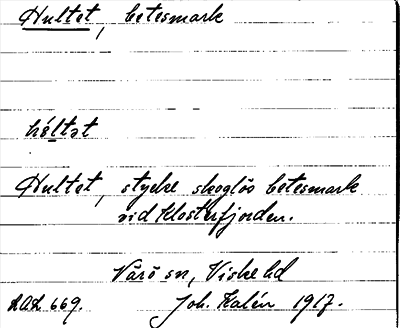 Hultet, betesmark
hóltət
Hultet, stycke skoglös betesmark
vid Klosterfjorden.
Värö sn, Viske hd
AOH 669. Joh. Kalén 1917.